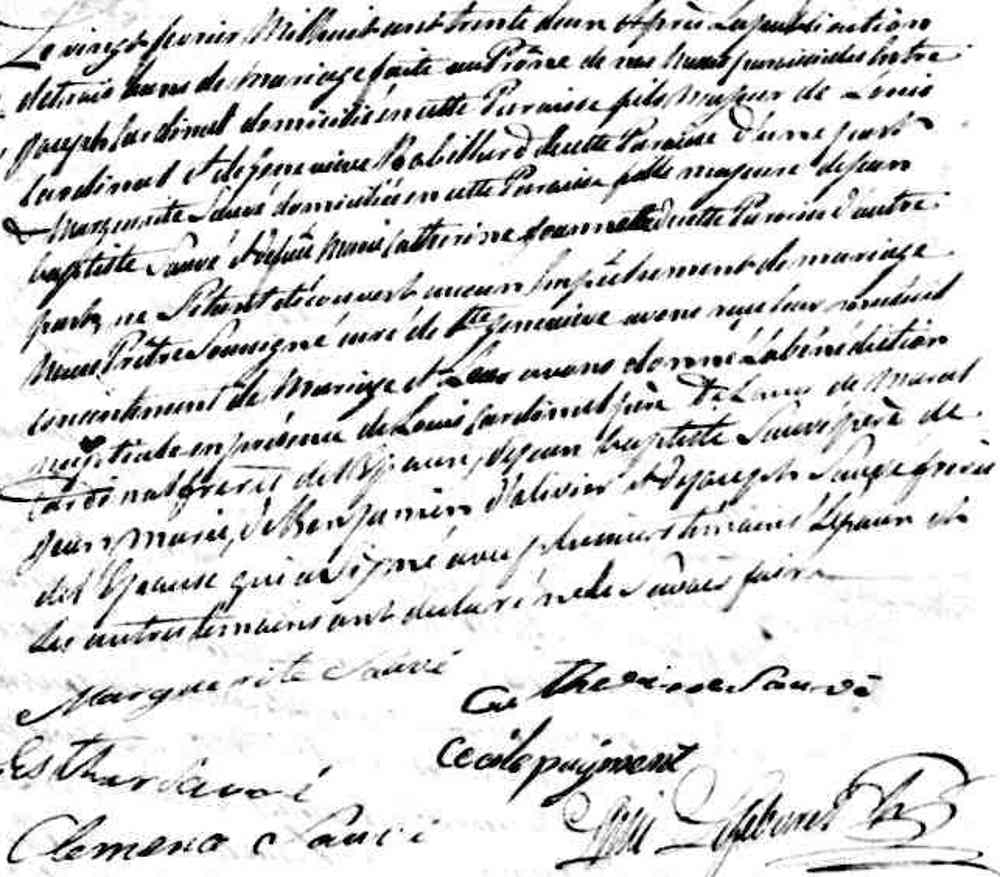 Le vingt fevrier Mil huit cent trente deux après la publication
de trois bans de mariage faite au Prône de nos messes paroissiales entre
joseph Cardinal domicilié en cette Paroisse fils majeur de Louis
Cardinal et de Geneviève Rabillard de cette Paroisse d'une part
& Marguerite Sauvé domiciliée en cette Paroisse fille majeure de jean
baptiste Sauvé et de feüe Marie Catherine de cette Paroisse d'autre
part, ne S'étant découvert aucun Empêchement de mariage
Nous Prêtre Soussigné curé de Ste geneviève avons reçu leur mutuel
consentement de Mariage et Leur avons donné La bénédiction
nuptiale en présence de Louis Cardinal père De Louis de
Cardinal freres de l'Epoux, de jean baptiste Sauvé père de
jean marie, de Benjamin d'olivier et de joseph Sauvé freres
de l'Epouse qui a Signé avec plusieurs témoins L'epoux et
les autres témoins ont declaré ne le Savoir faire
Marguerite Sauvé
Catherine Sauvé
Cecile payment
Esther Sauvé
Clemence Sauvé
Lefebvre Ptre